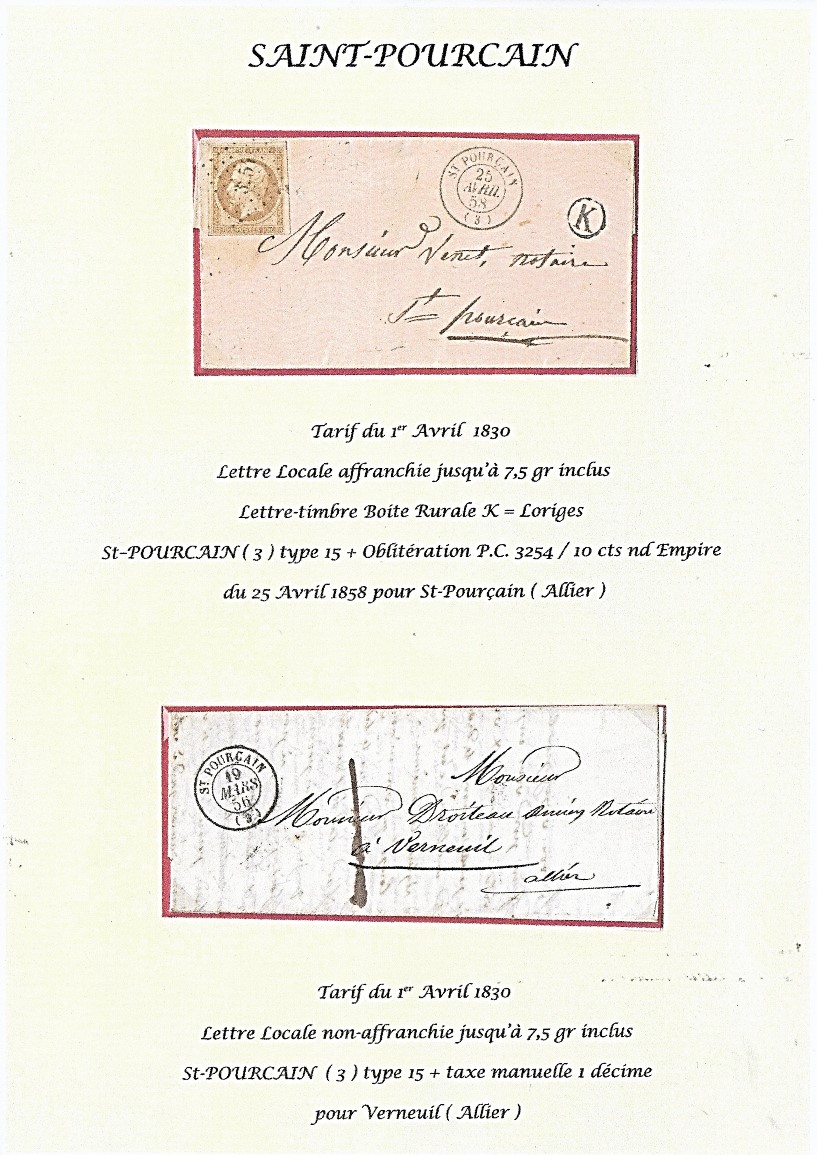 SAINT-POURCAIN
ST POURCAIN
25
AVRIL
58
(3)
K
Monsieur Venet, notaire
St pourcain
Tarif du 1er Avril 1830
Lettre Locale affranchie jusqu'à 7,5 gr inclus
Lettre-timbre Boite Rurale K = Loriges
St-POURCAIN ( 3 ) type 15 + Oblitération P.C. 3254 / 10 cts nd Empire
du 25 Avril 1858 pour St-Pourçain ( Allier )
ST POURCAIN
19
MARS
56
(3)
Monsieur
Monsieur Notaire
à Verneuil
allier
Tarif du 1er Avril 1830
Lettre Locale non-affranchie jusqu'à 7,5 gr inclus
St-POURCAIN ( 3 ) type 15 + taxe manuelle 1 décime
pour Verneuil ( Allier )